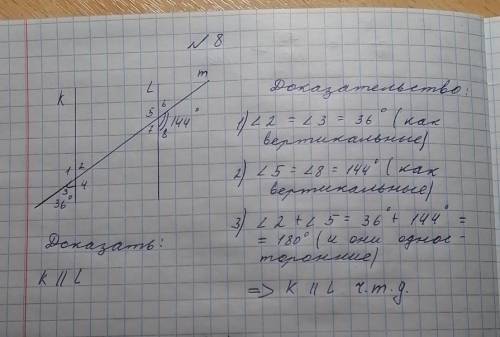 № 8
K
L
m
5 6
7 8
144°
1 2
3 4
36°
Доказать:
K || L
Доказательство:
1) ∠2 = ∠3 = 36° (как
вертикальные)
2) ∠5 = ∠8 = 144° (как
вертикальные)
3) ∠2 + ∠5 = 36° + 144° =
= 180° (и они однос-
торонние)
=> K || L ч.т.д.